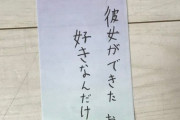 彼女ができた
好きなんだけ